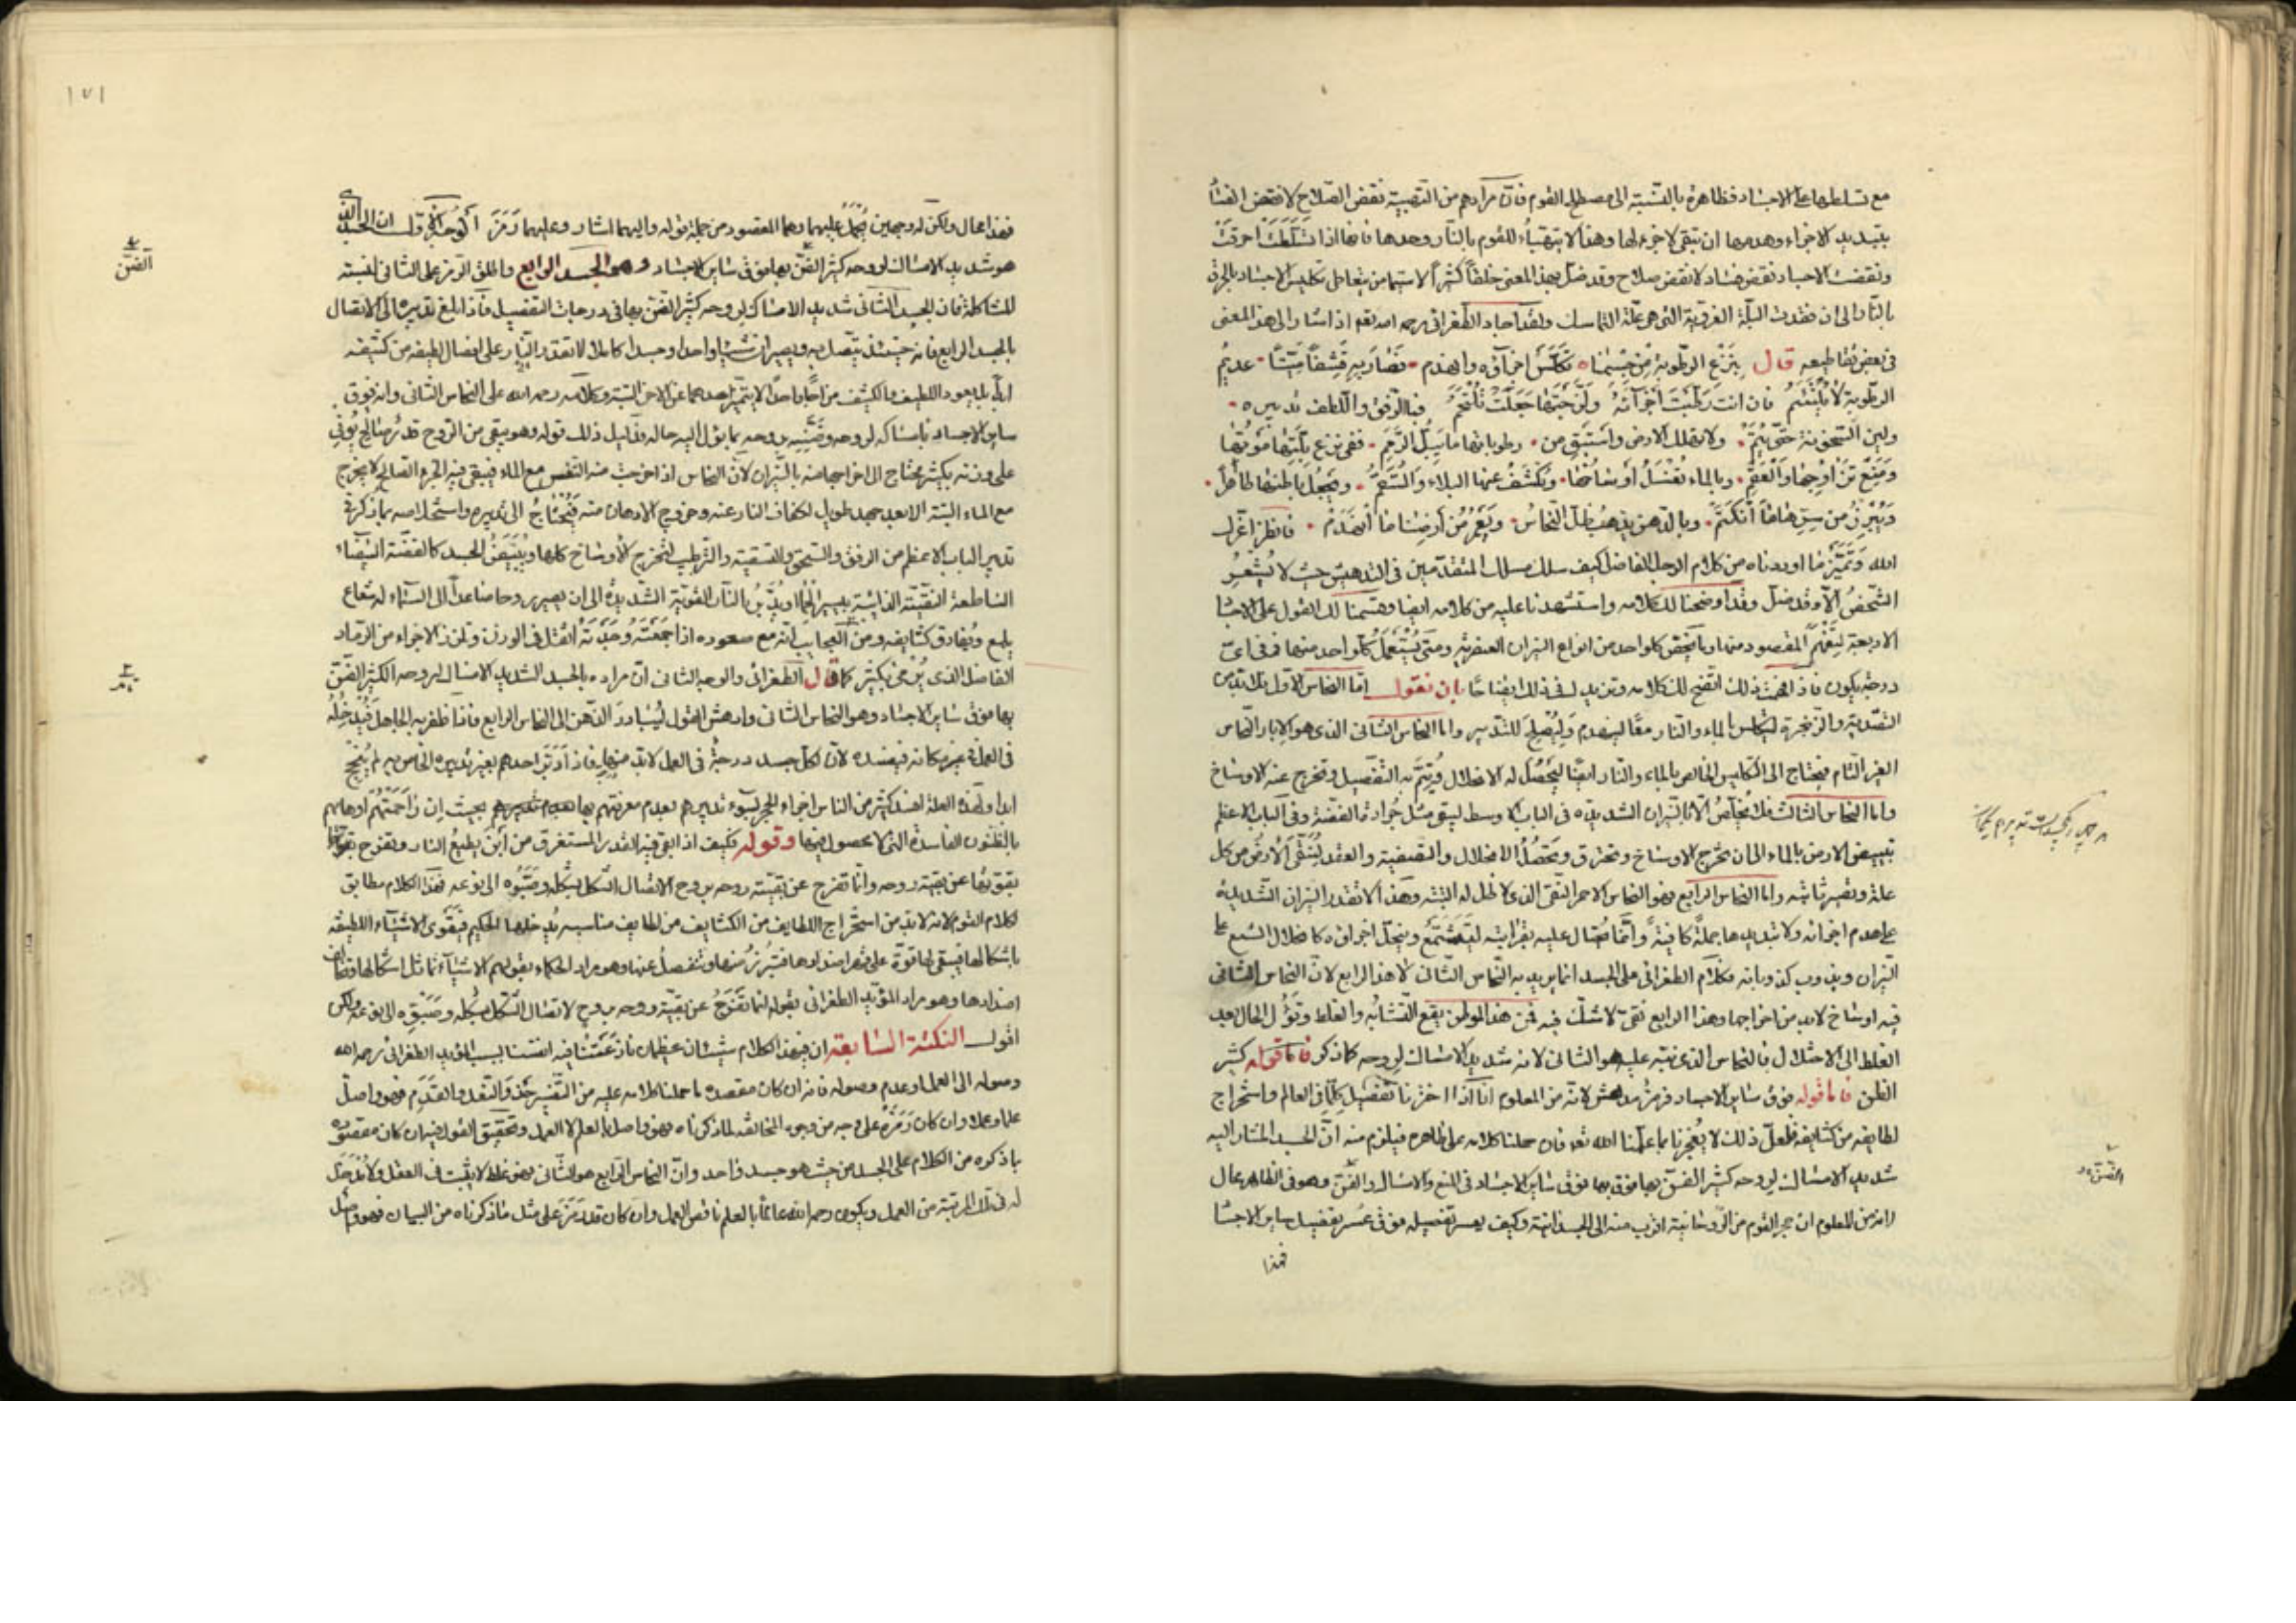 مع تسلطها على الاجساد فظاهرة بالنسبة الى مصطلح القوم فان مرادهم من التقية نقض الصلاح لا نقض الفساد
بتبديد الاجزاء وهدمها ان تبقى لاجزء لها وهذا لا يتهيأ للقوم بالنار وحدها فانها اذا تسلطت احرقت
ونقضت الاجساد نقض فساد لا نقض صلاح وقد ضل بهذا المعنى خلقا كثيرا لا سيما من يتعاطى تكليس الاجساد بالحرق
بالنار الى ان فقدت البلة الغروية التى هى علة التماسك ولقد اجاد الطغرائى رحمه الله تعم اذ اشار الى هذا المعنى
فى بعض مقاطيعه قال بنزع الرطوبة من جسمنا تكلس اجزاؤه وانهدم فصار به قشفا ميتا عديم
الرطوبة لا يلتئم فان انت رطبت اجزائه ولججتها جعلت تلتحم فبالرفق واللطف تدبيره
ولين السخونة حتى يتم ولا تهلك الارض واستبق من رطوباتها ما يسيل الرحم ففى نزع بلتها موتها
وبالماء تغسل اوساخها وتكشف عنها البلاء والسقم ويجعل باطنها ظاهرا
ويبرز من سرها ما انكتم وبالدهن يذهب ظل النحاس ويعمر من ارضنا ما انهدم فانظر اعزك
الله وتميز ما اوردناه من كلام الرجل الفاضل كيف سلك مسلك المتقدمين فى التدهيش حيث لا يشعر
الشخص الا وقد ضل وقد اوضحنا لك كلامه واستشهدنا عليه من كلامه ايضا وقسمنا لك القول على الاجساد
الاربعة ليفهم المقصود منها وما يختص كل واحد من انواع النيران العنصرية ومتى يستعمل كل واحد منها وفى اى
درجة يكون فاذا فهمت ذلك اتضح لك كلامه ونزيد لك فى ذلك ايضاحا بان نقول اما النحاس الاول بلا تدبير
التصدية والزنجرة ليكلس بالماء والنار معا لينهدم وليصلح للتدبير واما النحاس الثانى الذى هو الابار النحاس
الغير التام فيحتاج الى التكليس الخالص بالماء والنار ايضا ليحصل له الانحلال ويتم به التفصيل وتخرج عنه الاوساخ
واما النحاس الثالث فلا يخلص الا بالنيران الشديدة فى الباب الاوسط ليبقى مثل برادة الفضة وفى الباب الاعظم
تبييض الارض بالماء الى ان تخرج الاوساخ وتحترق ويحصل الانحلال والتصفية والعقد لتنقى الارض من كل
علة وتصير ثابتة واما النحاس الرابع فهو النحاس الاحمر النقى الذى لا ظل له البتة وهذا لا تقدر النيران الشديدة
على هدم اجزائه ولا تبديدها جملة كافية وانما يحتال عليه بقرابته ليتشمع وينحل اجزاؤه كانحلال الشمع على
النيران ويذوب كذوبانه فكلام الطغرائى على الجسد انما يريد به النحاس الثانى لا هذا الرابع لان النحاس الثانى
فيه اوساخ لا بد من اخراجها وهذا الرابع نقى لا شك فيه فمن هذا الموطن يقع التشابه والغلط وتؤل الحال بعد
الغلط الى الاختلال فالنحاس الذى نبه عليه هو الثانى لانه شديد الامساك لروحه كما ذكر فاما قوله كثير
الظن فاما قوله فوق سائر الاجساد فرمز مدهش لانه من المعلوم انا اذا احززنا تفصيل كلما فى العالم واستخراج
لطايفه من كثايفه فلعل ذلك لا يعجزنا بما علمنا الله تعم فان حملنا كلامه على ظاهره فيلزم منه ان الجسد المشار اليه
شديد الامساك لروحه كثير الضن بها فوق بها فوق سائر الاجساد فى المنع والامساك والضن وهو فى الظاهر محال
لانه من المعلوم ان حجر القوم من الروحانية اقرب منه الى الجسدانية وكيف يعسر تفصيله فوق عسر تفصيل سائر الاجساد
فهذا
الضن
١٧١
فهذا محال ولكن له وجهان يحمل عليهما وهما المقصود من جملة قوله واليهما اشار وعليهما رمز الوجه الاول ان الجسد الثانى
هو شديد الامساك لروحه كثير الضن بها فوق سائر الاجساد وهى الجسد الرابع واطلق الرمز على الثانى نسبته
للمشاكلة فان الجسد الثانى شديد الامساك لروحه كثير الضن بها فى درجات التفصيل فاذا بلغ تدبيره الى الاتصال
بالجسد الرابع فانه حينئذ يتصل به ويصيران شيئا واحدا وجسدا كاملا لا تقدر النار على انفصال لطيفه من كثيفه
ابدا بل يعود اللطيف والكثيف مزاجا واحدا لا يتميز احدهما عن الاخر البتة وكلامه رحمه الله على النحاس الثانى وانه فوق
ساير الاجساد بامساكه لروحه وضنه بروحه بما يؤل اليه حاله ودليل ذلك قوله وهو يبقى من الروح قدر صالح يوفى
على وزنه بكثير يحتاج الى اخراجها منه بالنيران لان النحاس اذا خرجت منه النفس مع الماء فيبقى فيه الجزء الصالح لا يخرج
مع الماء البتة الا بعد جهد طويل لكفاف النار عنه وخروج الادهان منه فيحتاج الى تدبيره واستخلاصه بما ذكر فى
تدبير الباب الاعظم من الرفق والسحق والتسقية والترطيب لتخرج الاوساخ كلها ويبيض الجسد كالفضة البيضاء
الساطعة النقية الذائبة بيسير الحما او يدبر بالنار القوية الشديدة الى ان يصير روحا صاعدا الى السماء له شعاع
يلمع ويفارق كثايفه ومن العجايب انه مع صعوده اذا جمعته وجدته اثقل فى الوزن وتلزز الاجزاء من الرماد
الفاضل الذى يرمى بكثير كما قال الطغرائى والوجه الثانى ان مراده بالجسد الشديد الامساك لروحه الكثير الضن
بها فوق سائر الاجساد وهو النحاس الثانى وادهش القول ليتبادر الذهن الى النحاس الرابع فاذا ظفر به الجاهل فيدخله
فى العمل فى غير مكانه فيفسده لان لكل جسد درجة فى العمل لا بد منها فاذا دبر احدهم بغير تدبيره الخاص به لم ينجح
ابدا ولهذه العلة افسد كثير من الناس اجزاء الحجر لسوء تدبيرهم بعدم معرفتهم بها بحيث ان زاحمتهم اوهامهم
بالظنون الفاسدة التى لا محصول فيها وقوله فكيف اذا بقى فيه القدر المستغرق من اين يطيع النار وتفرج بقوتها
بقوتها عن بقية روحه وانما تفرج عن بقية روحه بروح الاتصال الشكل بشكله وصبوه الى نوعه فهذا الكلام مطابق
لكلام القوم لانه لا بد من استخراج اللطايف من الكثايف من لطايف مناسبه يدخلها الحكيم فتقوى الاشياء اللطيفة
باشكالها فيبقى لها قوة على قهر اضدادها فتبرز منها وتنفصل عنها وهو مراد الحكماء بقولهم الاشياء تماثل اشكالها وتضاد
اضدادها وهو مراد المؤيد الطغرائى بقوله انما تفرج عن بقية روحه بروح لاتصال الشكل بشكله وصبوه الى نوعه ولكن
اقول النكتة السابعة ان فى هذا الكلام شيئان عظيمان
وصوله الى العمل وعدم وصوله فانه ان كان مقصده ما حملنا كلامه عليه فهو واصل
علما وعملا وان كان رمزه على وجه من وجوه المخالفة لما ذكرناه فهو واصل بالعلم لا العمل وتحقيق القول فيه ان كان مقصوده
ما ذكره من الكلام على الجسد من حيث هو جسد واحد وان النحاس الرابع هو الثانى فهو غلط لا يثبت فى العقل ولا مدخل
له فى تلك المرتبة من العمل ويكون رحمه الله عالما بالعلم ناقص العمل وان كان قد رمز على مثل ما ذكرناه من البيان فهو واصل
الضن